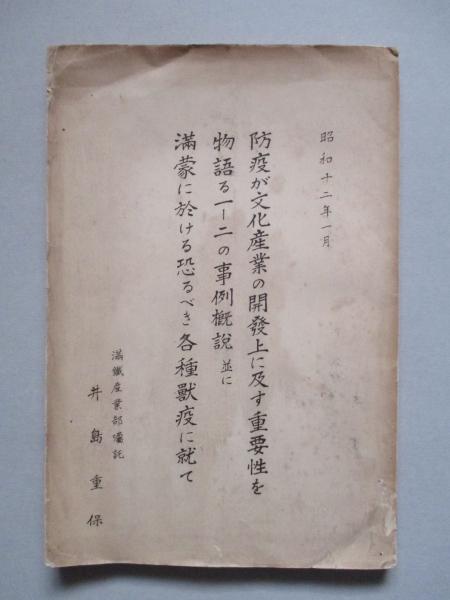 昭和十二年一月
防疫が文化産業の開發上に及す重要性を
物語る一ー二の事例概說並に
滿蒙に於ける恐るべき各種獸疫に就て
滿鐵産業部囑託
井島重保